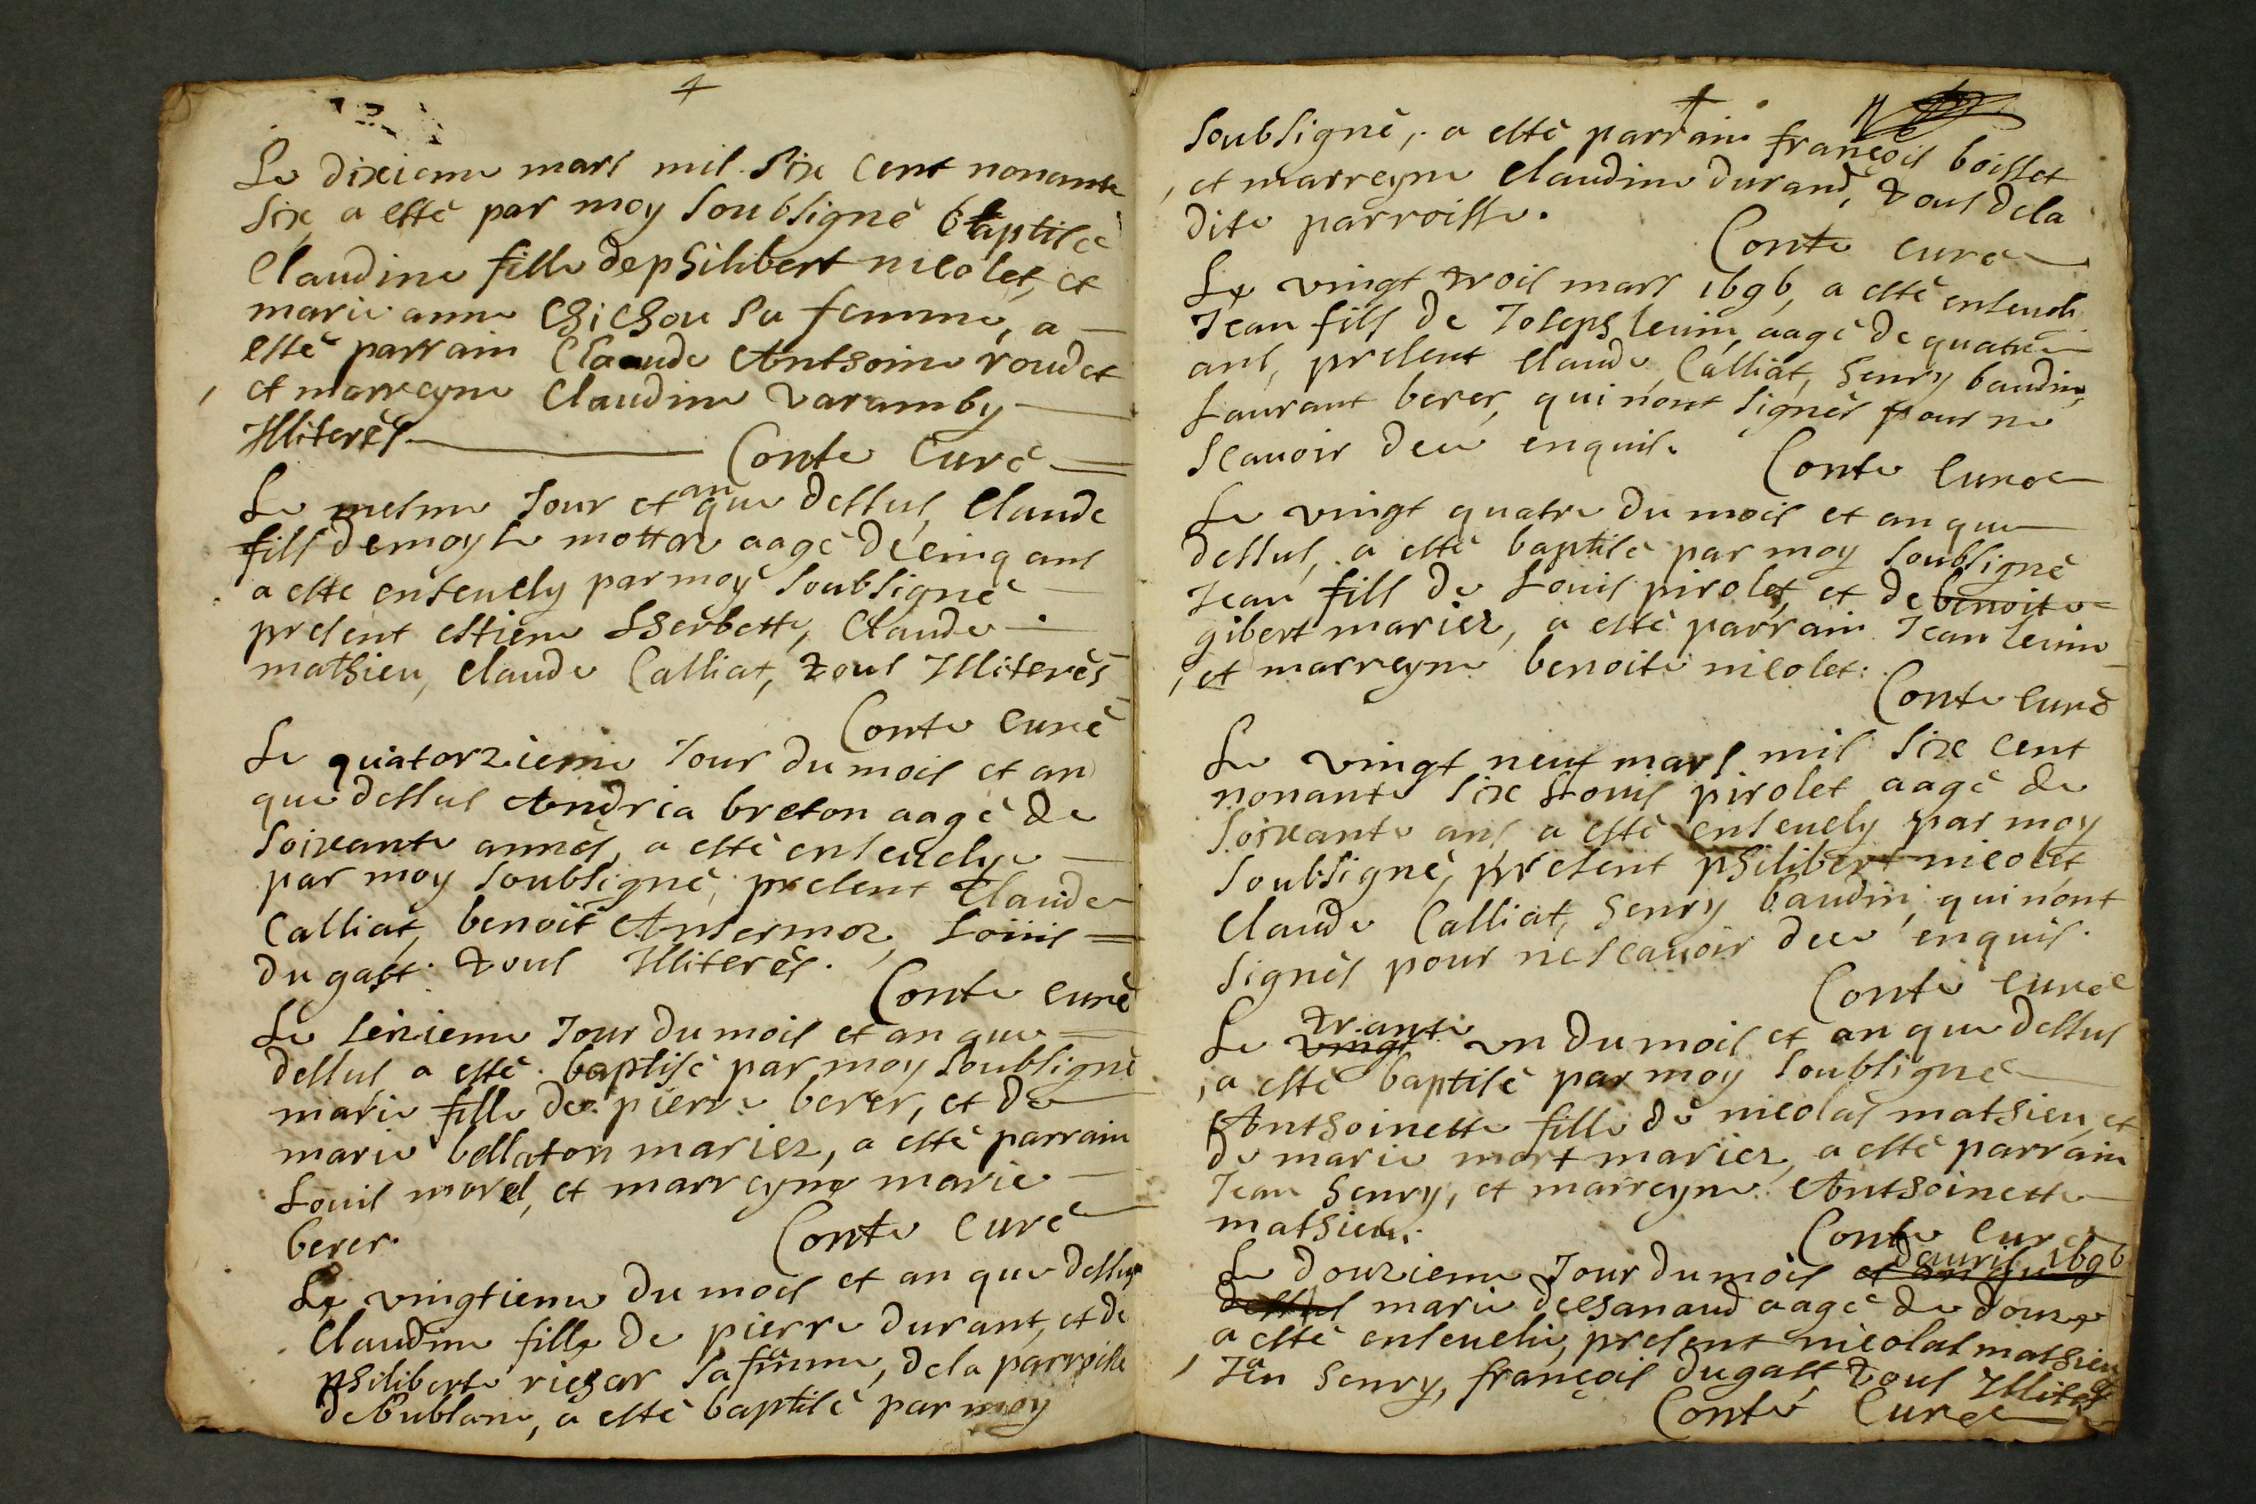 Le dixieme mars mil six cent nonante
six, a esté par moy soubsigné baptisée
Claudine fille de philibert nicolet, et
marie anne Chichou sa femme, a
esté parrain Claude Anthoine roudet
et marreyne Claudine varamby
Illiterés Conte Curé
Le mesme Jour et an que dessus, Claude
fils de moyse mottaz aagé de cinq ans
a esté ensevely par moy soubsigné
present estiene Lherbette, Claude
mathieu, Claude Calliat, tous Illiterés
Conte Curé
Le quatorzieme Jour du mois et an
que dessus Andria breton aagé de
soixante annés, a esté ensevelye
par moy soubsigné, present Claude
Calliat, benoit Ansermoz, Loüis
du gast tous Illiterés.
Conte Curé
Le seizieme Jour du mois et an que
dessus a esté baptisé par moy soubsigné
marie fille de pierre berer, et de
marie bellaton mariez, a esté parrain
Louis morel, et marreyne marie
berer. Conte Curé
Le vingtieme du mois et an que dessus
Claudine fille de pierre durant, et de
philiberte richar sa femme, de la parroisse
de bublane, a esté baptisé par moy
soubsigné, a esté parrain françois boisset
et marreyne Claudine durand, tous de la
dite parroisse.
Conte Curé
Le vingt trois mars 1696, a esté enseveli
Jean fils de Joseph levin, aagé de quatre
ans, present Claude Calliat, henry baudin,
Laurant berer, qui n'ont signés pour ne
scavoir deue enquis.
Conte Curé
Le vingt quatre du mois et an que
dessus, a esté baptisé par moy soubsigné
Jean fils de Louis pirolet, et de benoite
gibert mariez, a esté parrain Jean levin
et marreyne benoite nicolet:
Conte Curé
Le vingt neuf mars mil six cent
nonante six Louis pirolet aagé de
soixante ans a esté ensevely par moy
soubsigné, present philibert nicolet
Claude Calliat, henry baudin, qui n'ont
signés pour ne scavoir deue enquis.
Conte Curé
trante
Le vingt un du mois et an que dessus
a esté baptisé par moy soubsigné
Anthoinette fille de nicolas mathieu, et
de marie mort mariez, a esté parrain
Jean henry, et marreyne Anthoinette
mathieu.
Conte Curé
d'avril 1696
Le douzieme Jour du mois et an que
dessus marie dechanaud aagé de douze
a esté ensevelie, present nicolas mathieu
Jean henry, françois dugast tous Illiterés
Conte Curé